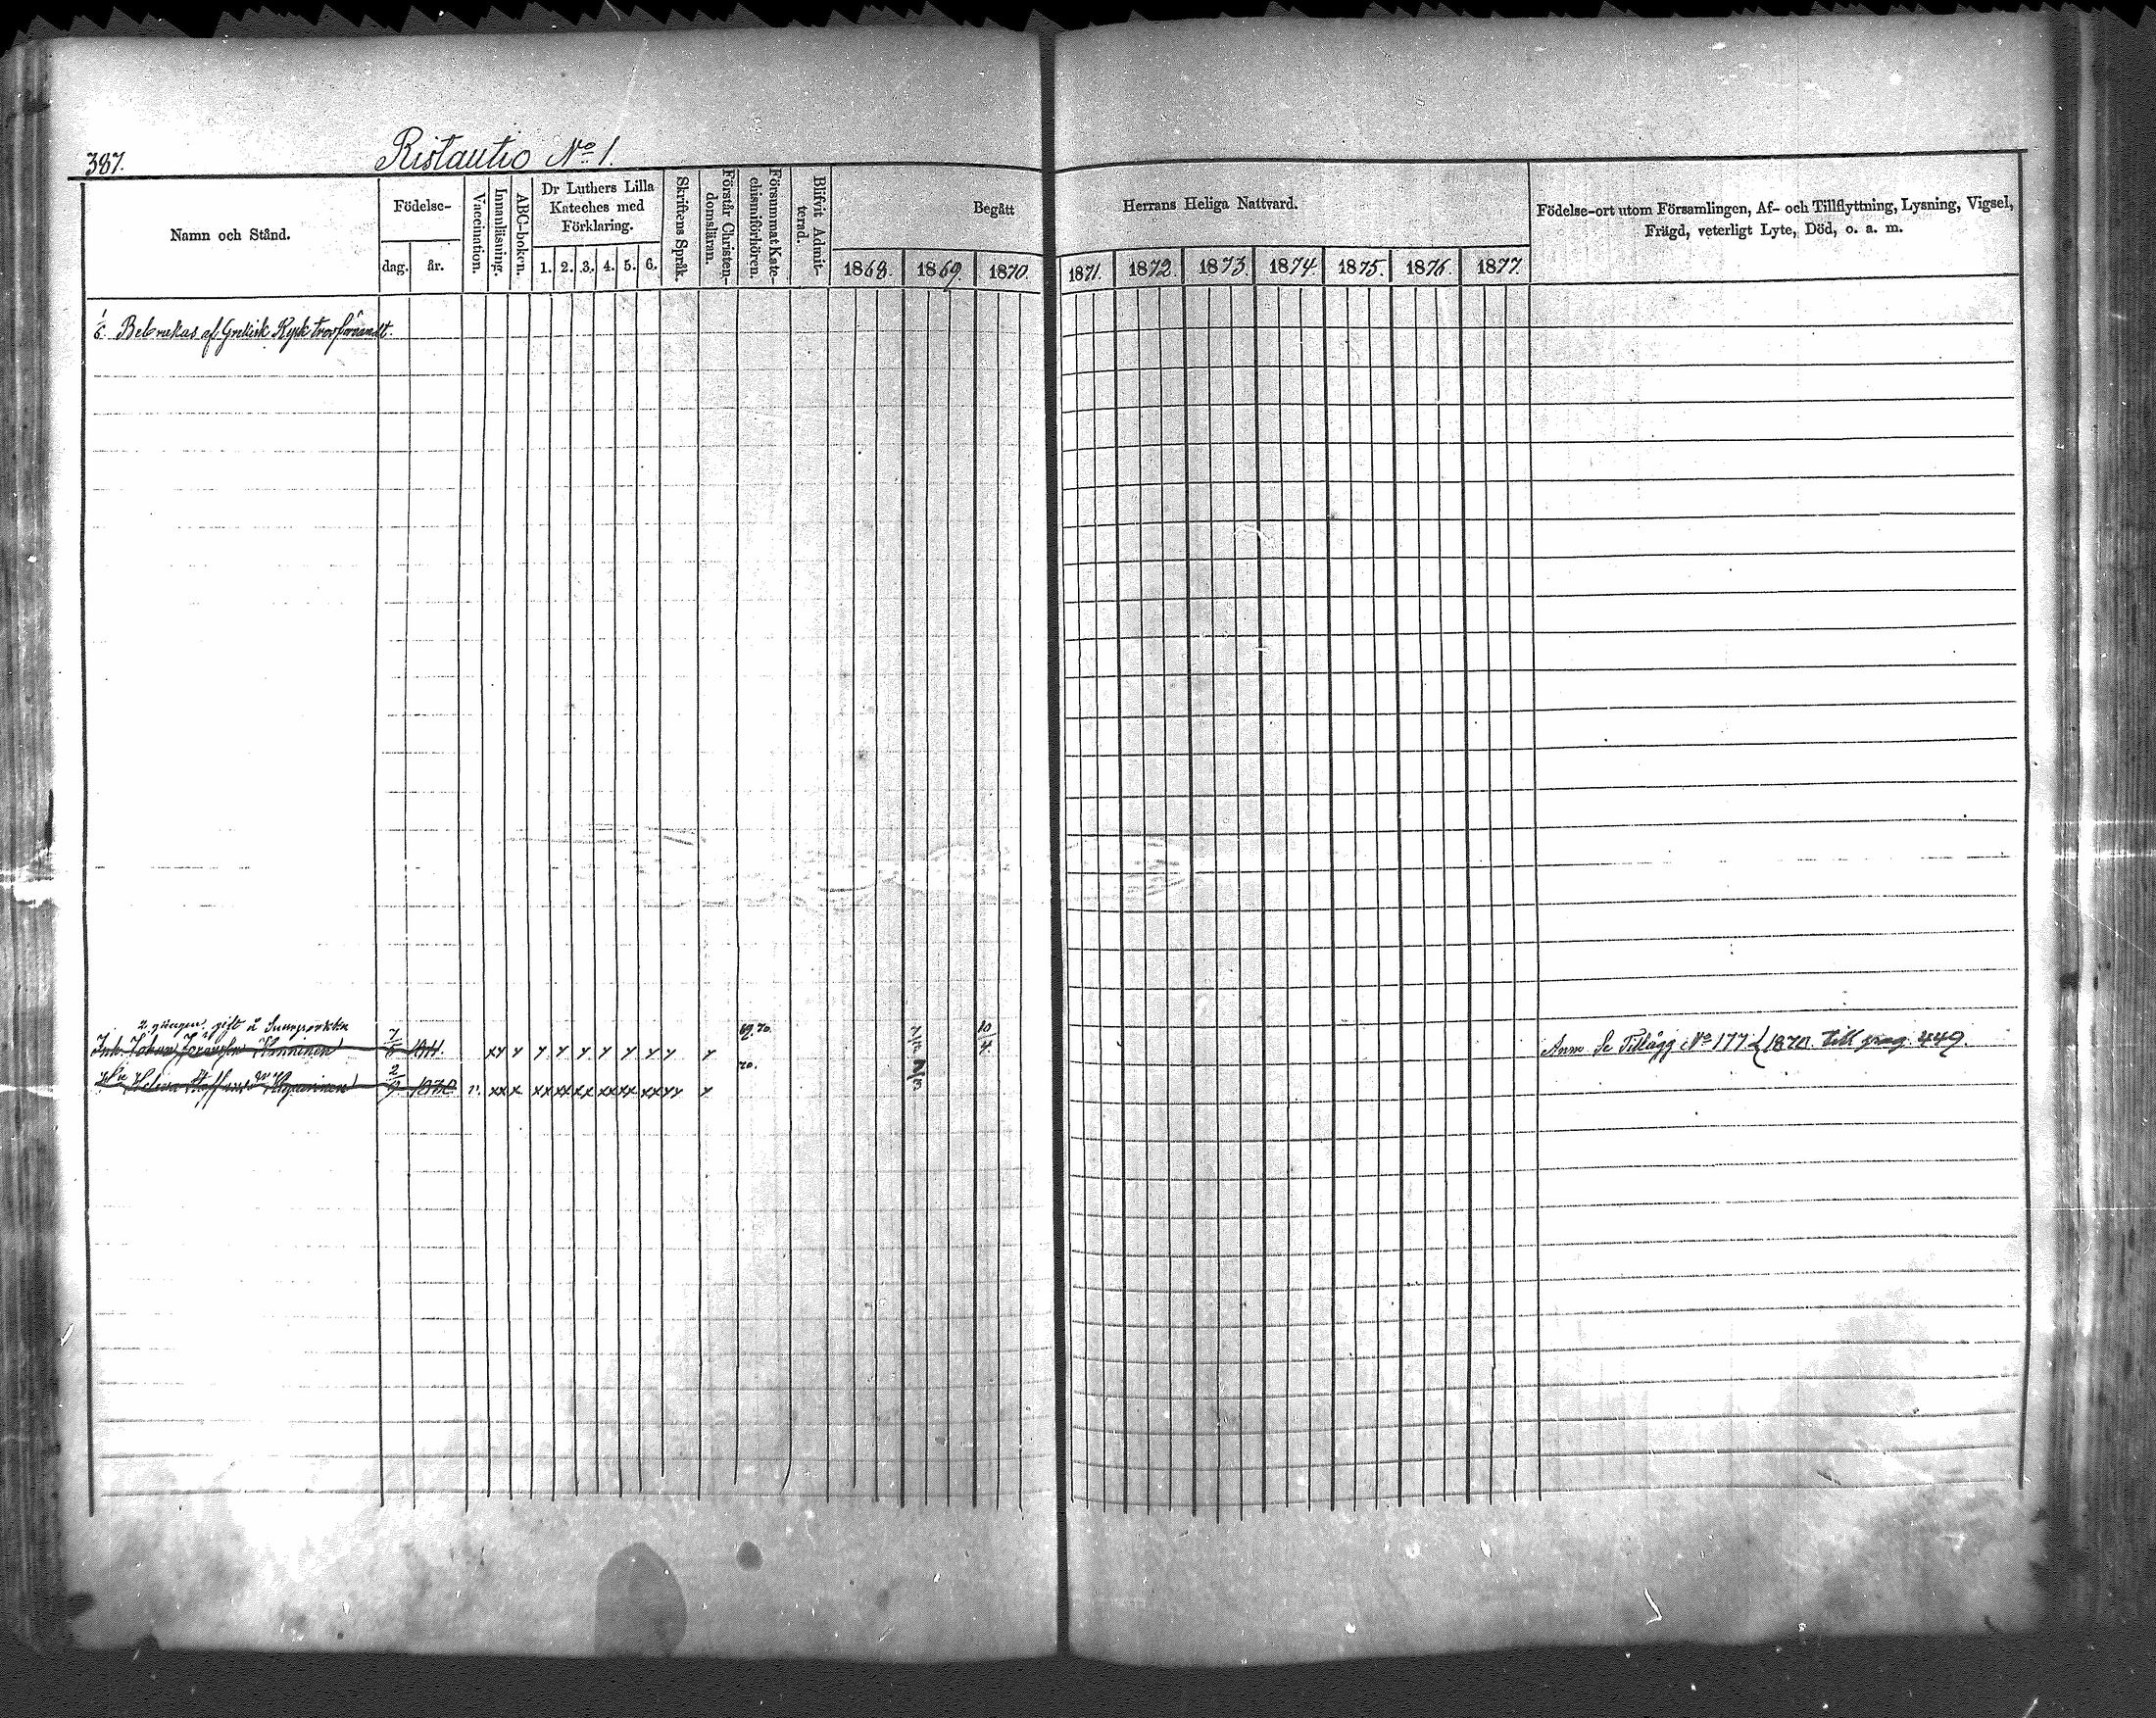 387.
Ristautio No 1.
Namn och Stånd.
Födelse-
dag.
år.
Vaccination.
Innanläsning.
ABC-boken.
Dr Luthers Lilla
Kateches med
Förklaring.
1. 2. 3. 4. 5. 6.
Skriftens Språk.
Förstår Christen-
domsläran.
Försummat Kate-
chismiförhören.
Blifvit Admit-
terad.
Begått
Herrans Heliga Nattvard.
1868. 1869. 1870. 1871. 1872. 1873. 1874. 1875. 1876. 1877.
Födelse-ort utom Församlingen, Af- och Tillflyttning, Lysning, Vigsel,
Frägd, veterligt Lyte, Död, o. a. m.
1/6 af Grekisk
2 gången gift å
Inh. Johan 7/6 1811. xy y y y y y y y y y 69.70. 10/4 Anm Se Tillägg No 177 1870 till pag. 449.
Helena 2/9 v. xx x xx xx xx xx xx xx yy y 70.